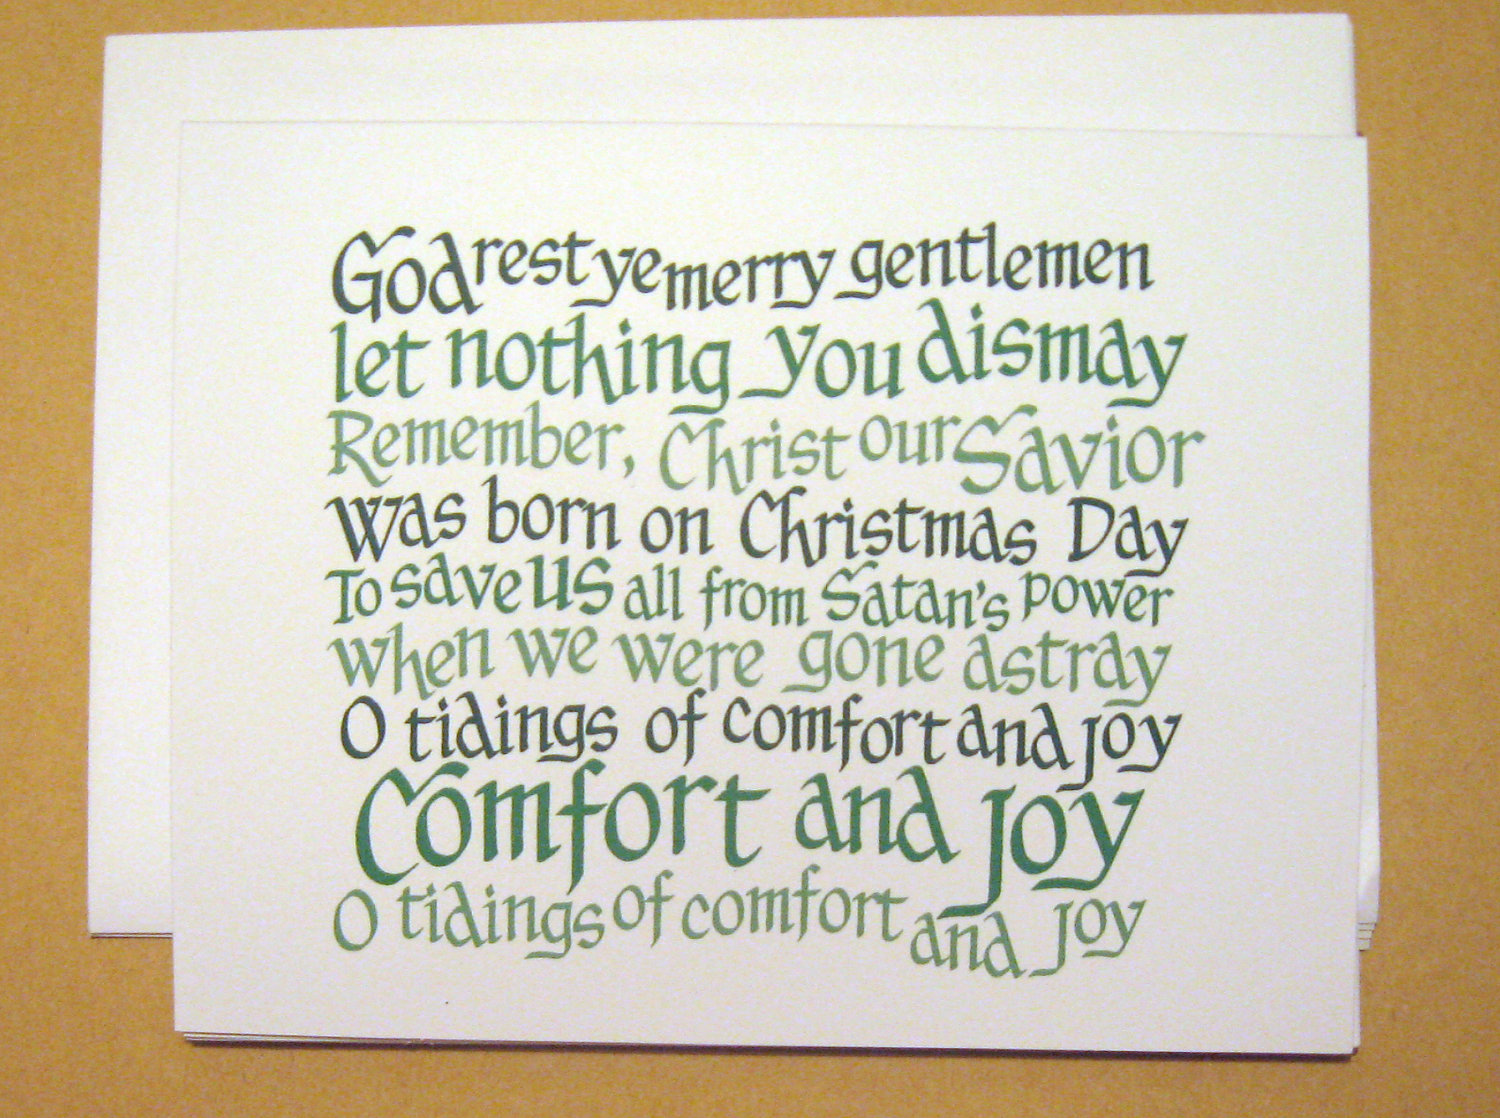 God rest ye merry gentlemen
let nothing you dismay
Remember, Christ our Savior
was born on Christmas Day
To save us all from Satan's power
when we were gone astray
O tidings of comfort and joy
Comfort and joy
O tidings of comfort and joy